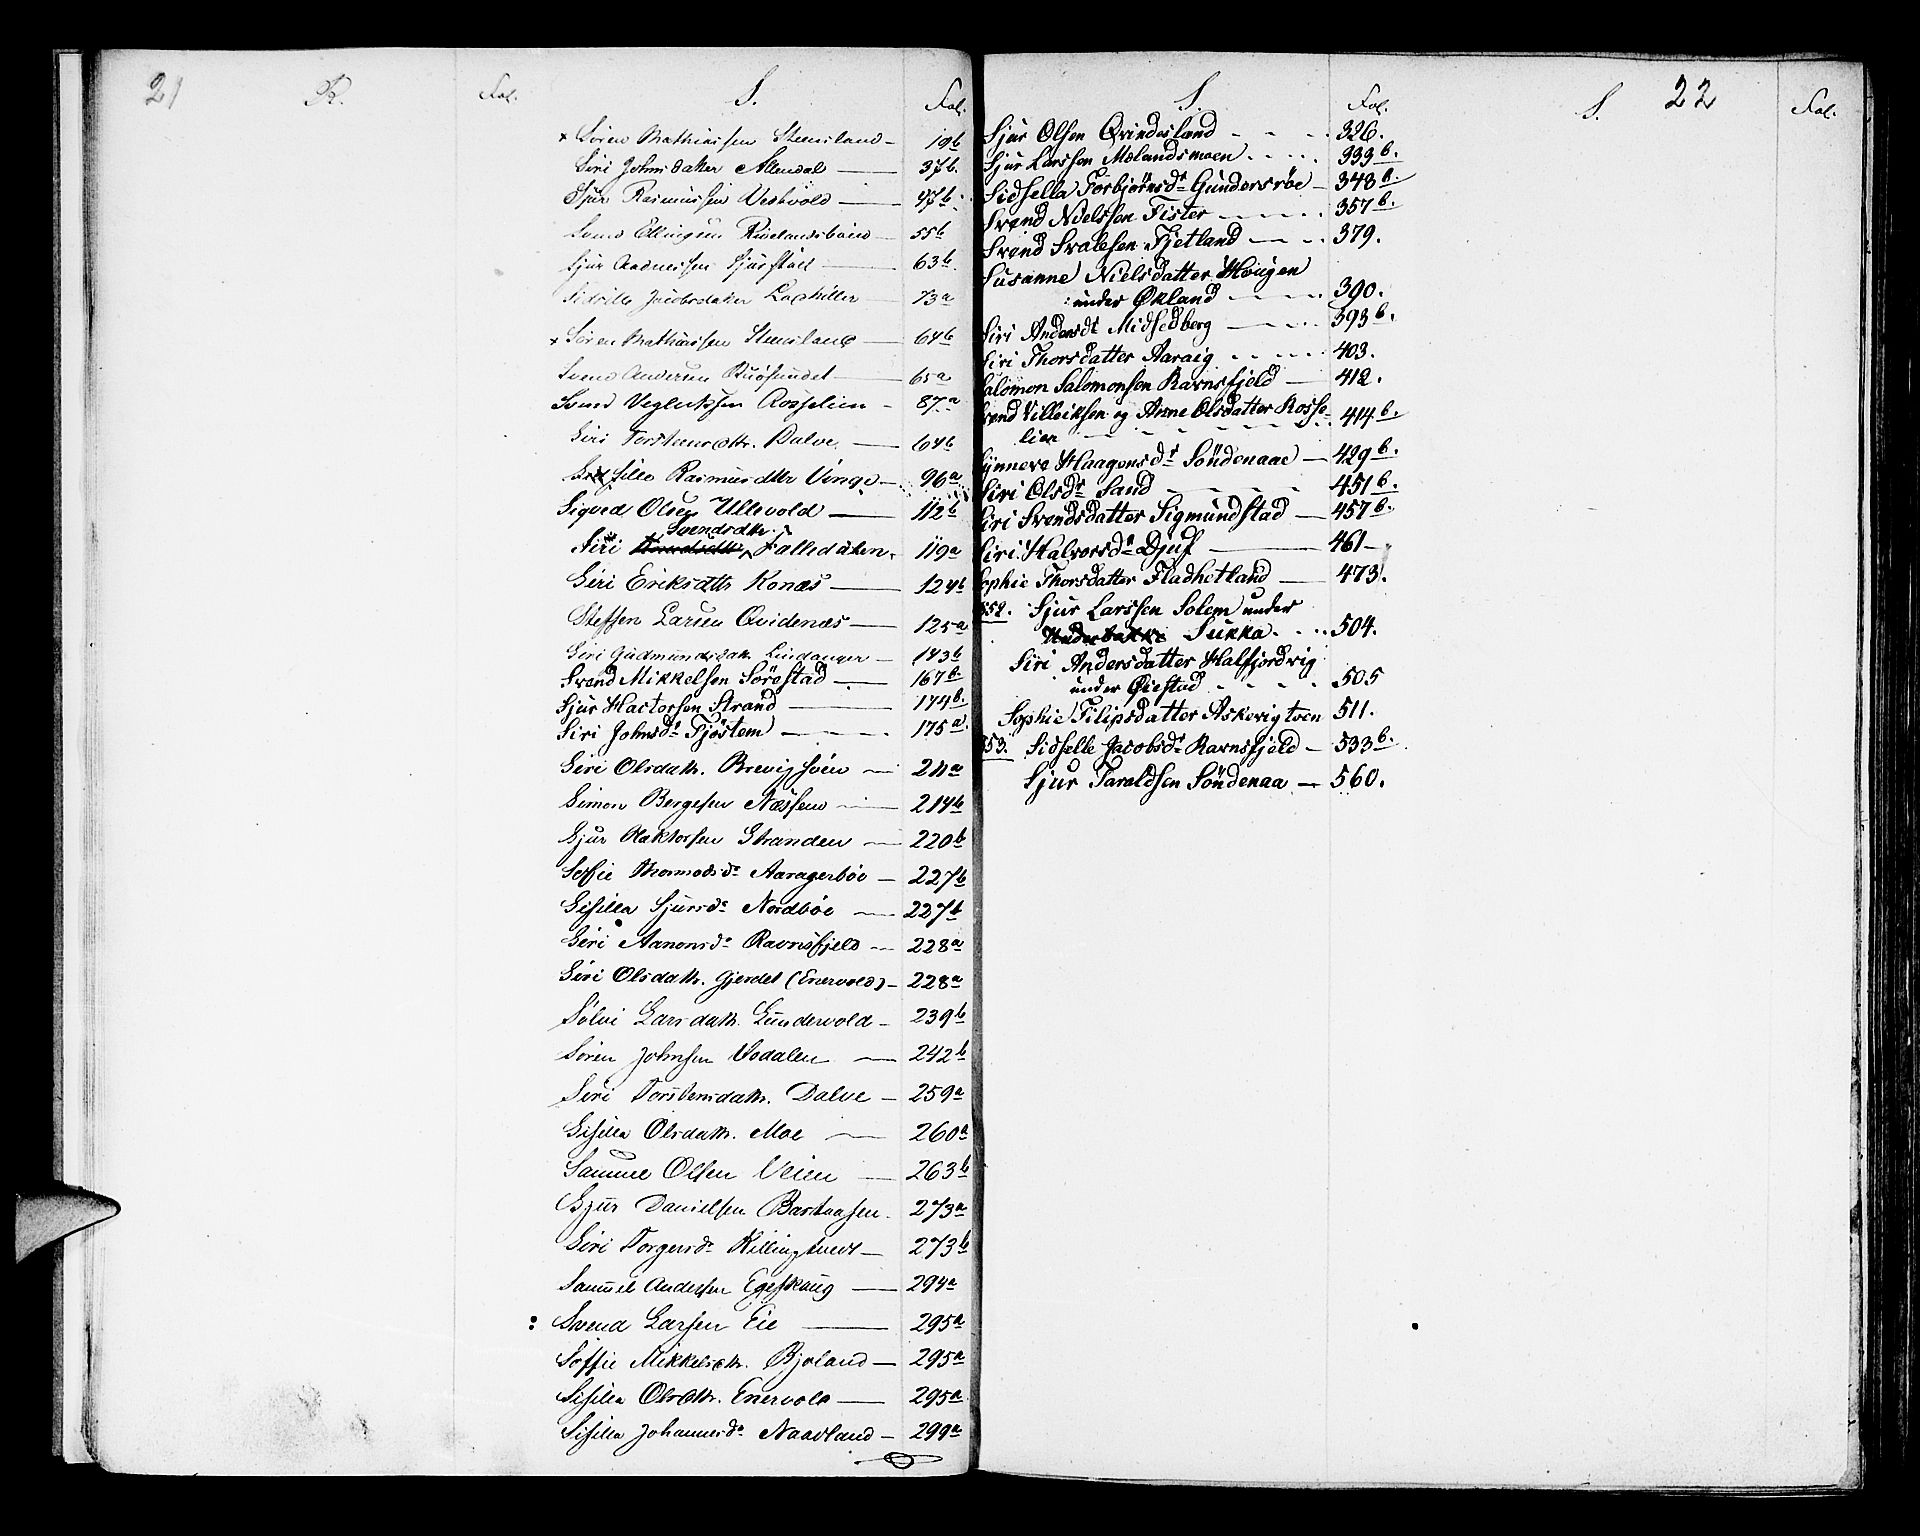 21
R.
Fol.
S.
Fol.
× Sören Mathiassen Steensland – 19b
Siri Johnsdatter Allendal — 37b.
Sjur Rasmussen Vestvold — 47b.
Svend Ellingsen Riselandsböin — 55b
Sjur Aadnessen Sjurstöil — 63b.
Sidsille Jacobsdatter Laxhiller — 73a
× Sören Mathiassen Steensland — 64b
Svend Andersen Buösundet — 65a
Svend Veglecksen Rosselien – 87a
Siri Torstensdttr. Dalve — 64b
Sissille Rasmusdttr Vinge — 96a
Sigved Olsen Ullevold — 112b
Svendsdttr.
Siri Falledalen 119a
Siri Eriksdttr Konæs — 124b
Steffen Larsen Qvidenæs — 125a
Siri Gudmundsdatt. Lindanger — 143b
Svend Mikkelsen Sörestad — 167b.
Sjur Hactorsen Strand — 174b.
Siri Johnsdr Tjöstem — 175a.
Siri Olsdattr. Brevigsöen — 211a
Simon Bergesen Næssene — 214b
Sjur Haktorsen Stranden — 220b
Soffie Thormodsdr Aaragerböe — 227b
Sisilla Sjursdr Nordböe — 227b
Siri Aanonsdr Ravnsfjeld — 228a
Siri Olsdattr. Gjerdet (Enervold) – 228a
Sölvi Larsdattr. Gundervold – 239b
Sören Johnsen Vodalen — 242b
Siri Torstensdattr. Dalve – 259a
Sisilla Olsdattr. Moe — 260a
Samuel Olsen Veien — 263b
Sjur Danielsen Barkaasen. 273a
Siri Torgersdr Killingtvedt — 273b
Samuel Andersen Egeskaug — 294a
: Svend Larsen Eie — 295a
Soffie Mikkelsdttr. Bjoland — 295a
Sisilla Olsdttr. Enervold — 295a
Sisilla Johannesdr Naadland – 299a
S.
Fol.
Sjur Olsen Qvindesland - - - 326.
Sjur Larssen Mælandsmoen - - - - 333b.
Sidsella Torbjörnsdr Gundersröe – 348b.
Svend Nielssen Fister - - - - 357b.
Svend Svalesen Tjetland — - 379.
Susanne Nielsdatter Hougen
under Ökland - - - - 390.
Siri Andersdr Midsedberg — - - 393b.
Siri Thorsdatter Aaraig - - - - 403.
Salomon Salomonsen Ravnsfjeld — 412.
Svend Villeiksen og Anne Olsdatter Rosse-
lien - - - - - - - - 414b.
Synneva Haagensdr Söndenaae — 429b.
Siri Olsdr Sand - - - - 451b.
Siri Svendsdatter Sigmundstad — 457b.
Siri Halvorsdr Djuf — 461
Sophie Thorsdatter Fladhetland — 473.
852. Sjur Larssen Solem under
Sukka. - - 504.
Siri Andersdatter Halfjordvig
under Öiestad - - - - 505
Sophie Filipsdatter Askevigtoen 511.
853. Sidselle Jacobsdr Ravnsfjeld – 533b.
Sjur Taraldsen Söndenaa — 560.
S.
22
Fol.